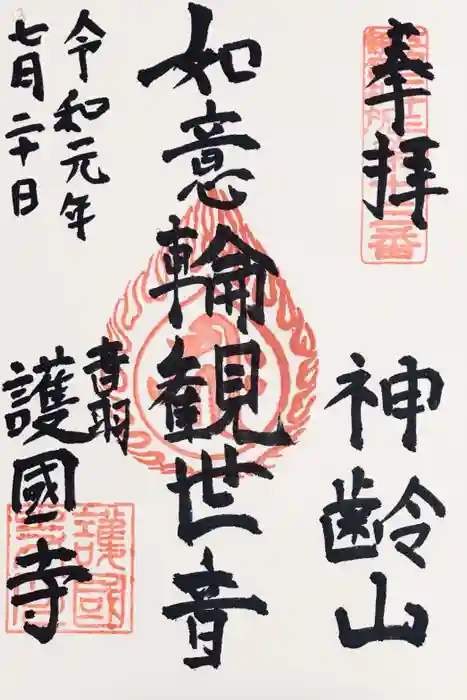 奉拝
神齢山
如意輪観世音
令和元年
七月二十日
音羽
護國寺